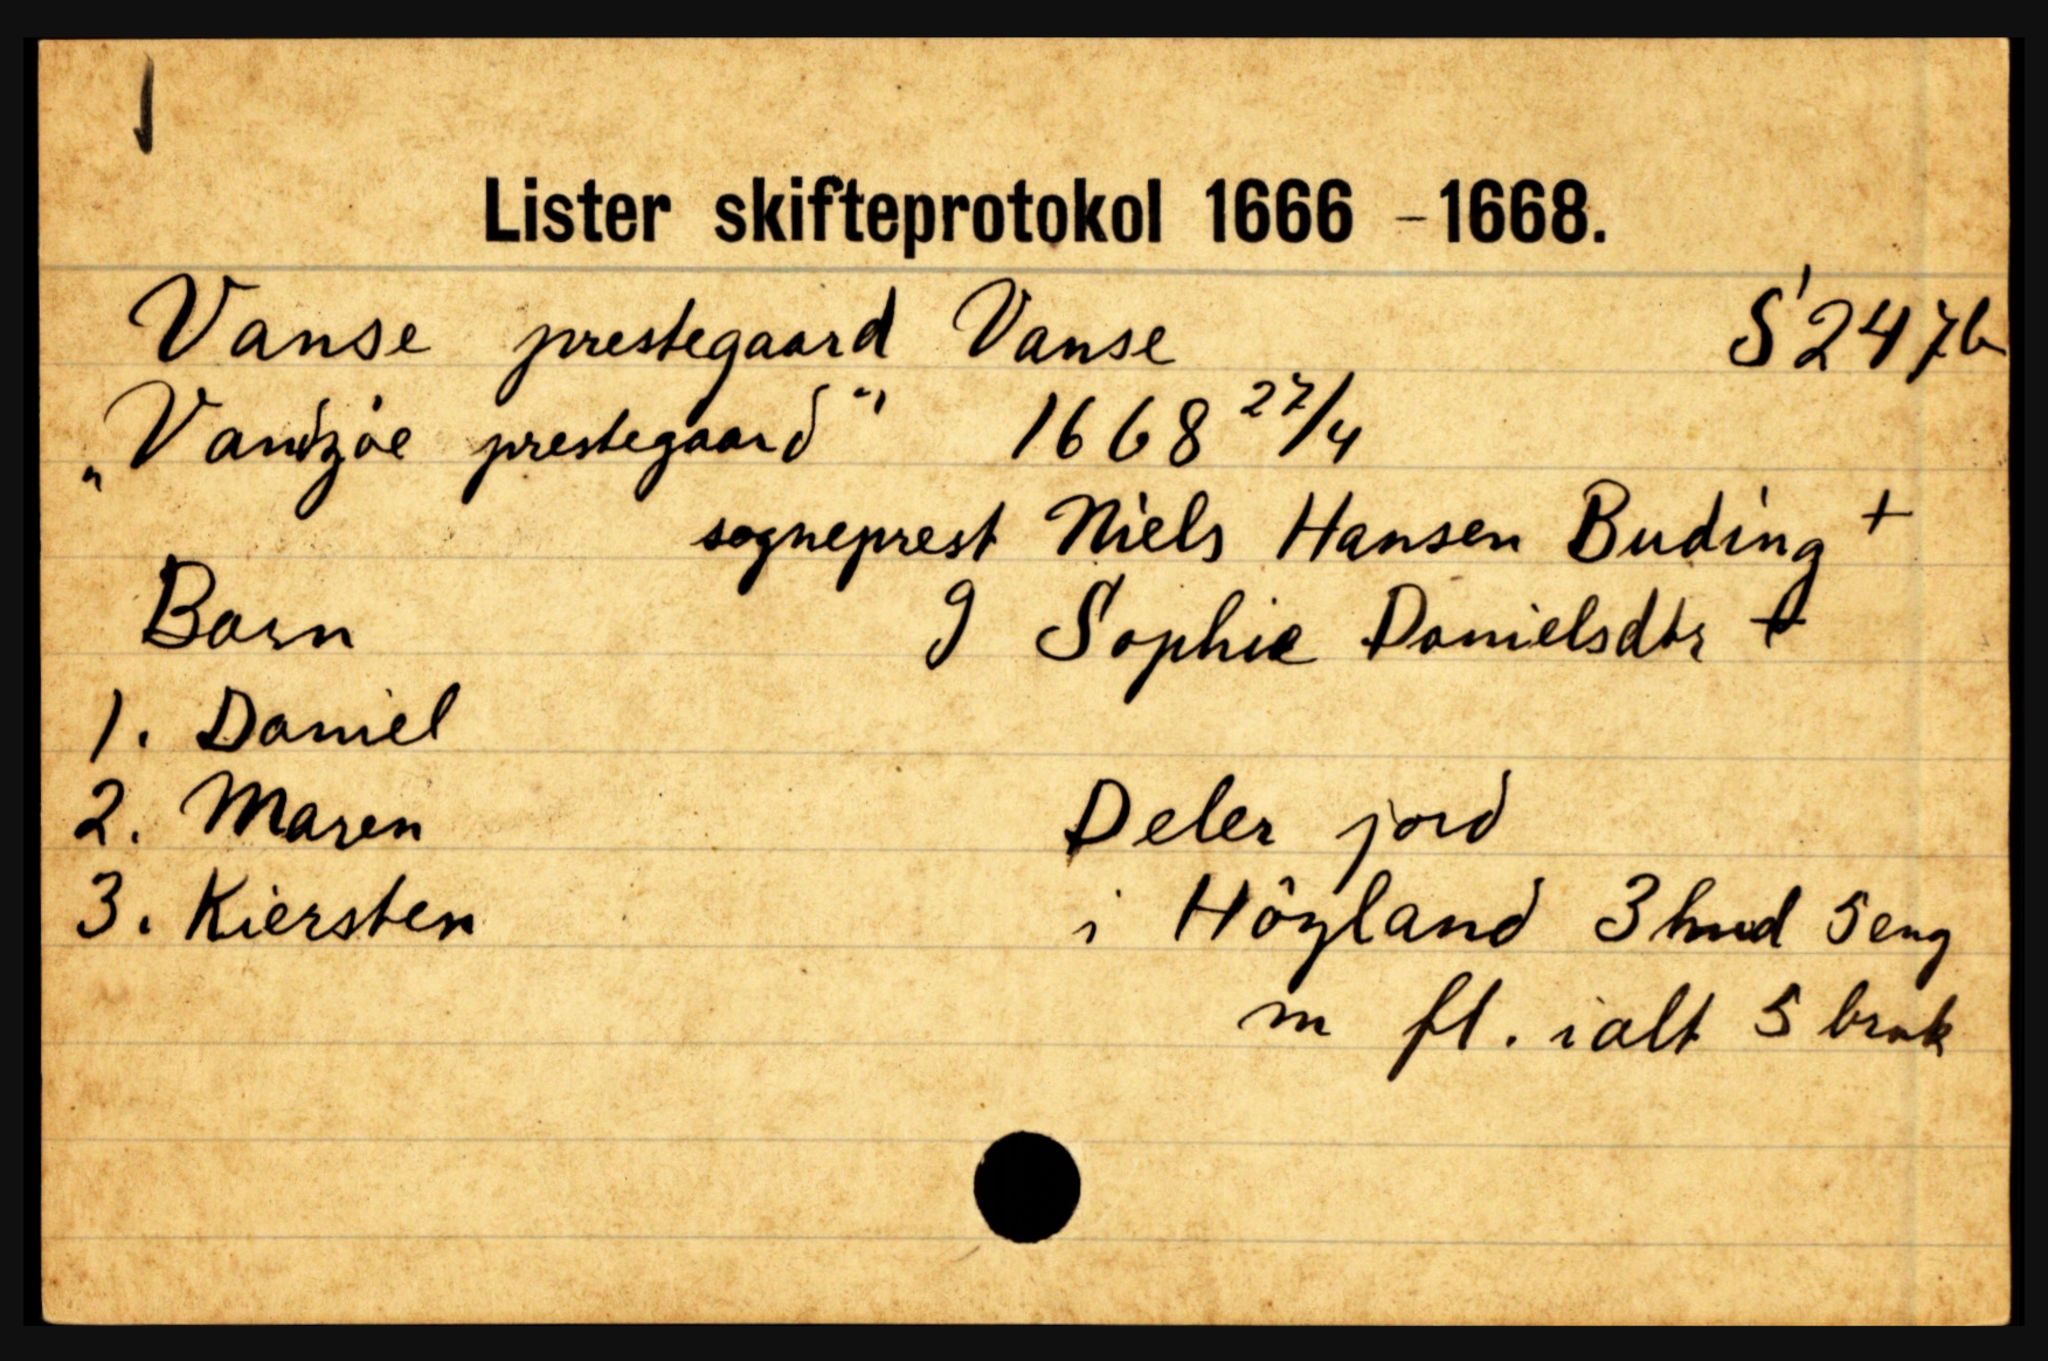 Lister skifteprotokol 1666 - 1668.
Vanse prestegaard Vanse S 247b
„Vandzøe prestegaard" 1668 27/4
sogneprest Niels Hansen Buding +
Barn g Sophie Danielsdtr +
1. Daniel
2. Maren Deler jord
3. Kiersten i Høyland 3 hud 5 eng
m fl. ialt 5 bruk